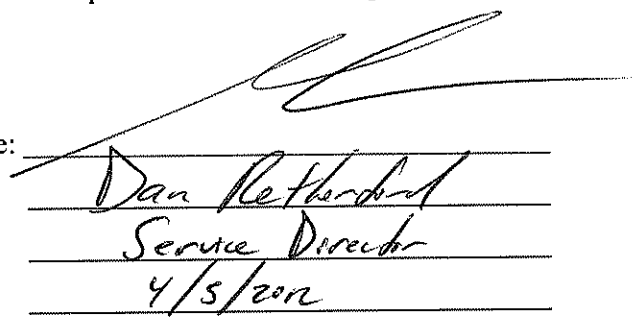 e:
Dan Retherford
Service Director
4/5/2012